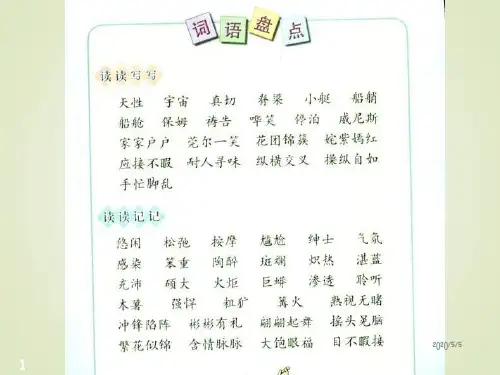 词语盘点
读读写写
天性 宇宙 真切 脊梁 小艇 船艄
船舱 保姆 祷告 哗笑 停泊 威尼斯
家家户户 莞尔一笑 花团锦簇 姹紫嫣红
应接不暇 耐人寻味 纵横交叉 操纵自如
手忙脚乱
读读记记
悠闲 松弛 按摩 尴尬 绅士 气氛
感染 笨重 陶醉 斑斓 炽热 湛蓝
充沛 硕大 火炬 巨蟒 渗透 聆听
木薯 强悍 粗犷 篝火 熟视无睹
冲锋陷阵 彬彬有礼 翩翩起舞 摇头晃脑
繁花似锦 含情脉脉 大饱眼福 目不暇接
1